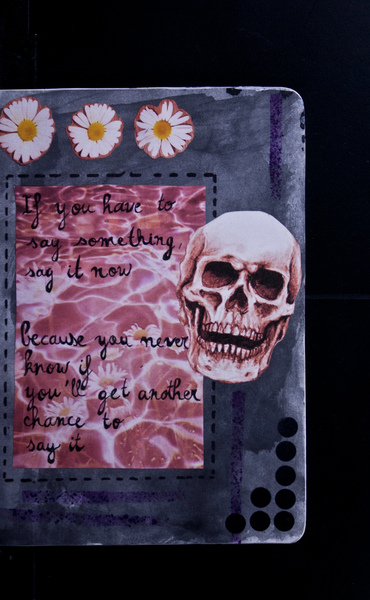 If you have to
say something,
say it now
because you never
know if
you'll get another
chance to
say it